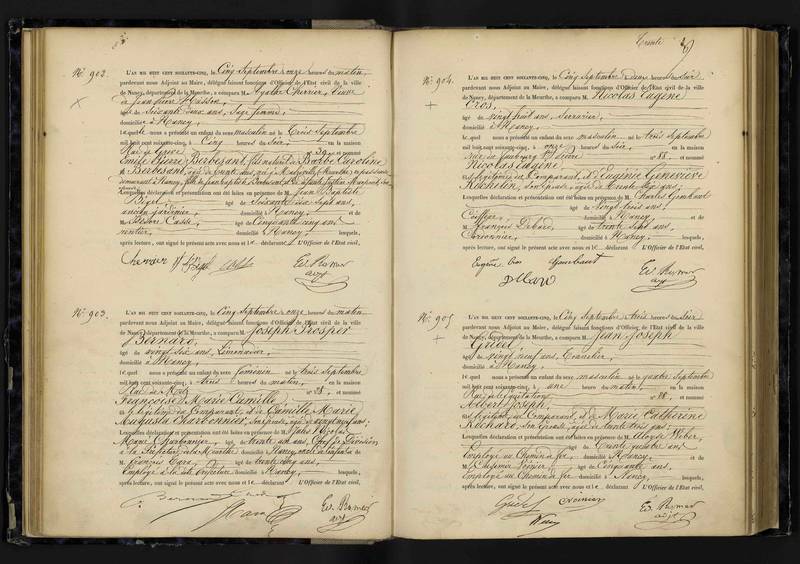 N° 902.
L'AN MIL HUIT CENT SOIXANTE-CINQ, le Cinq Septembre à onze heures du matin,
pardevant nous Adjoint au Maire, délégué faisant fonctions d'Officier de l'Etat civil de la ville
de Nancy, département de la Meurthe, a comparu M Agathe Cherrier, Veuve
de Jean Pierre
âgé de Soixante deux ans, Sage femme,
domicilié à Nancy,
lequel nous a présenté un enfant du sexe masculin né le Trois Septembre
mil huit cent soixante-cinq, à Cinq heures du Soir, en la maison
Rue n° 39 et nommé
Emile Pierre Berbesant, fils naturel de Barbe Caroline
Berbesant, âgée de trente ans, née à
demeurant à Nancy, fille de
Lesquelles déclaration et présentation ont été faites en présence de M Jean Baptiste
âgé de Soixante dix sept ans,
ancien jardinier, domicilié à Nancy, et de
M Isidore Casse, âgé de Cinquante cinq ans
rentier, domicilié à Nancy, lesquels,
après lecture, ont signé le présent acte avec nous et le déclarant L'Officier de l'Etat civil,
N° 903.
L'AN MIL HUIT CENT SOIXANTE-CINQ, le Cinq Septembre à onze heures du matin
pardevant nous Adjoint au Maire, délégué faisant fonctions d'Officier de l'Etat civil de la ville
de Nancy, département de la Meurthe, a comparu M Joseph Prosper
Bernard,
âgé de vingt six ans, Limonadier,
domicilié à Nancy,
lequel nous a présenté un enfant du sexe féminin né le trois Septembre
mil huit cent soixante-cinq, à trois heures du matin, en la maison
Rue de Metz n° 28, et nommé
Françoise Marie Camille
légitime du Comparant, et de Camille Marie
Augusta Charbonnier, Son épouse, âgée de vingt neuf ans;
Lesquelles déclaration et présentation ont été faites en présence de M Jules Nicolas
Mami Charbonnier, âgé de trente un ans, Chef de Division
à la Préfecture de la Meurthe domicilié à Nancy, oncle de l'enfant et de
M François Cara, âgé de trente cinq ans,
Employé à la domicilié à Nancy, lesquels,
après lecture, ont signé le présent acte avec nous et le déclarant. L'Officier de l'Etat civil,
Trente
N° 904.
L'AN MIL HUIT CENT SOIXANTE-CINQ, le Cinq Septembre à deux heures du Soir
pardevant nous Adjoint au Maire, délégué faisant fonctions d'Officier de l'Etat civil de la ville
de Nancy, département de la Meurthe, a comparu M Nicolas Eugène
Cros,
âgé de vingt huit ans, Serrurier,
domicilié à Nancy,
lequel nous a présenté un enfant du sexe masculin né le trois Septembre
mil huit cent soixante-cinq, à onze heures du Soir, en la maison
Rue du faubourg St Pierre n° 88, et nommé
Nicolas Eugène
légitime du Comparant, et d'Eugénie Geneviève
Son épouse, âgée de trente six ans;
Lesquelles déclaration et présentation ont été faites en présence de M Charles Gambaut
âgé de vingt trois ans,
Coiffeur, domicilié à Nancy, et de
M François âgé de trente sept ans,
Cordonnier, domicilié à Nancy, lesquels,
après lecture, ont signé le présent acte avec nous et le déclarant L'Officier de l'Etat civil,
Eugène Cros Gambaut
N° 905
L'AN MIL HUIT CENT SOIXANTE-CINQ, le Cinq Septembre à trois heures du Soir
pardevant nous Adjoint au Maire, délégué faisant fonctions d'Officier de l'Etat civil de la ville
de Nancy, département de la Meurthe, a comparu M Jean Joseph
Gridel,
âgé de vingt neuf ans,
domicilié à Nancy,
lequel nous a présenté un enfant du sexe masculin né le quatre Septembre
mil huit cent soixante-cinq, à une heure du matin, en la maison
Rue de l'équitation n° 88, et nommé
Albert Joseph,
légitime du Comparant, et de Marie Catherine
Richard, Son épouse, âgée de trente trois ans;
Lesquelles déclaration et présentation ont été faites en présence de M Aloyse Weber,
âgé de Trente quatre ans
Employé au Chemin de fer, domicilié à Nancy et de
M âgé de Cinquante ans,
Employé au Chemin de fer domicilié à Nancy, lesquels,
après lecture, ont signé le présent acte avec nous et le déclarant L'Officier de l'Etat civil,